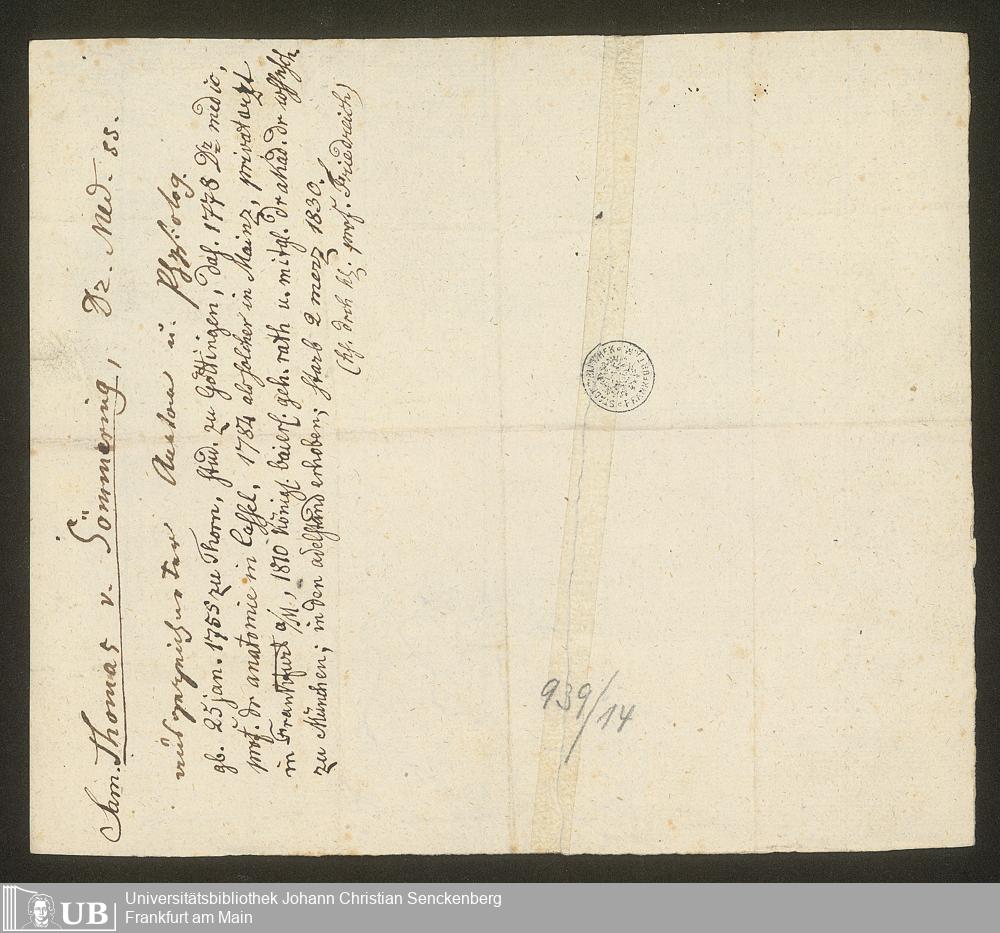 Sam. Thomas v. Sömmering, Dr. Med. 85.
ausgezeichneter Anatom u. Physiolog.
gb. 25 jan. 1755 zu Thorn, stud. zu Göttingen, das. 1778 Dr medic,
prof. dr anatomie in Cassel, 1784 als solcher in Mainz, privatarzt
in Frankfurt a/M, 1810 königl. baiers. geh. rath u. mitgl. dr akad. dr
zu München; in den adelstand erhoben; starb 2 merz 1830.
prof. Friedreich)
939/14
STADTBIBLIOTHEK FRANKFURT A.M.
UB
Universitätsbibliothek Johann Christian Senckenberg
Frankfurt am Main